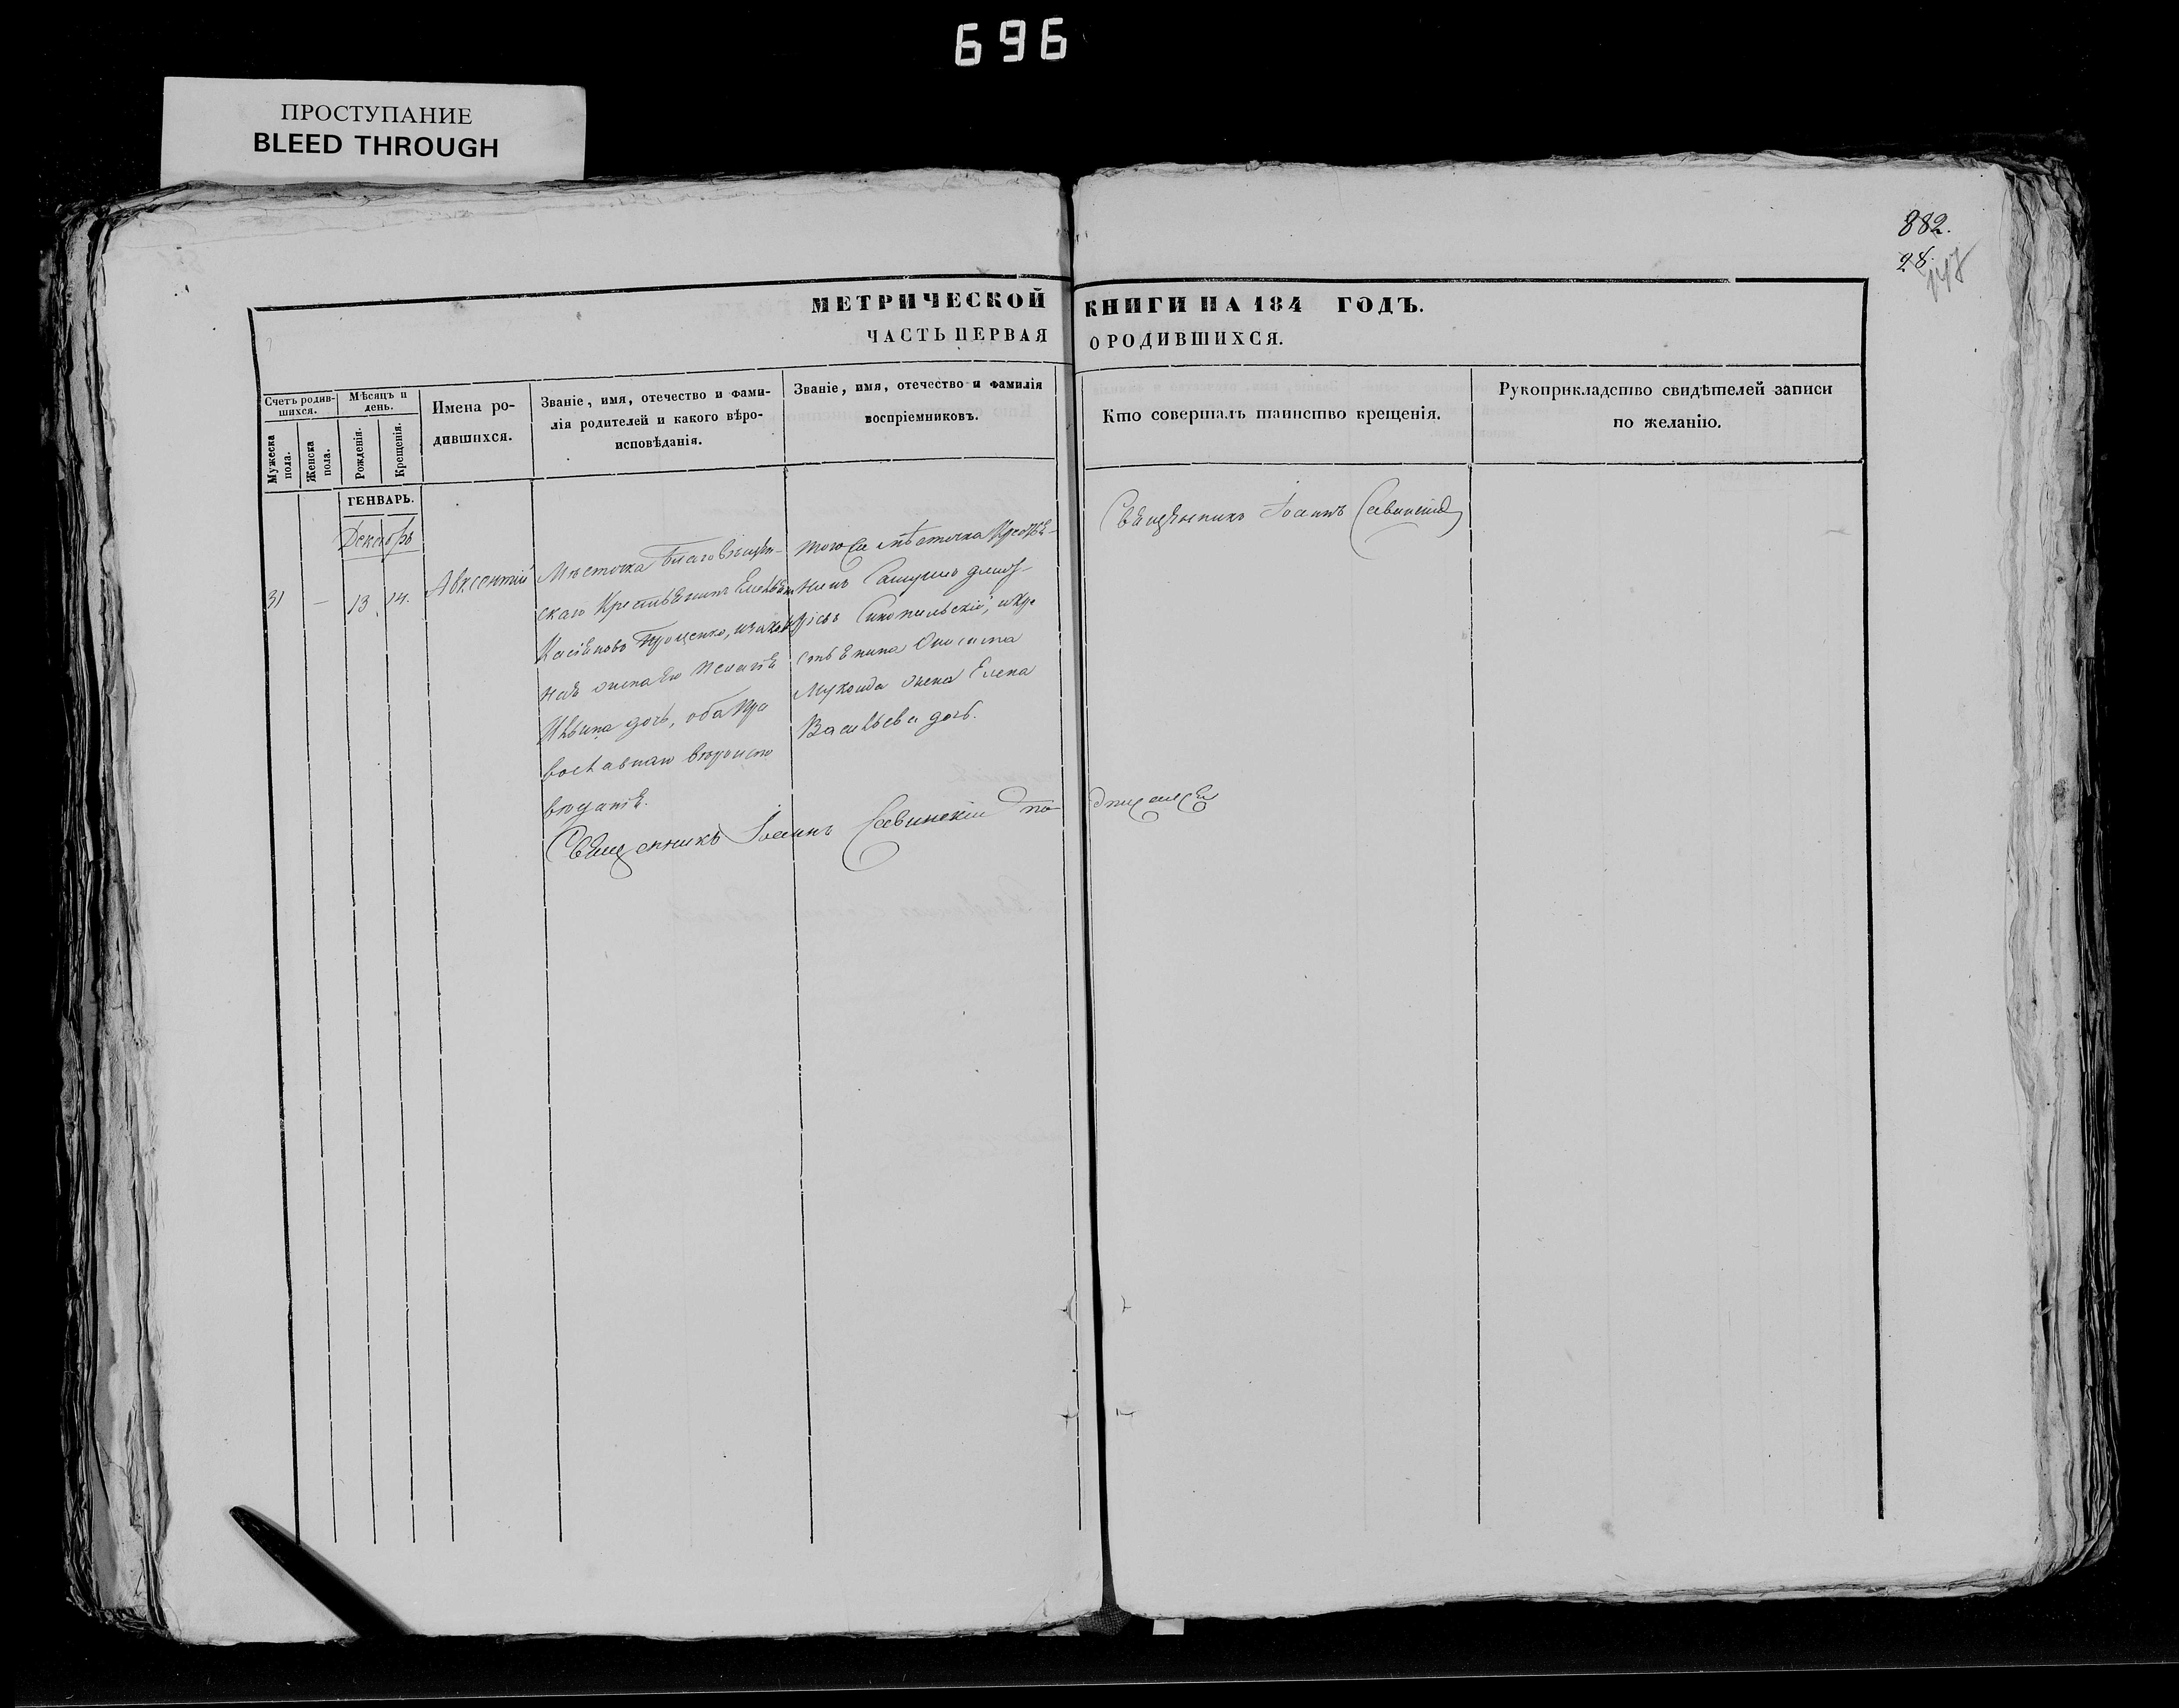 696
ПРОСТУПАНИЕ
BLEED THROUGH
882.
28.
МЕТРИЧЕСКОЙ КНИГИ НА 184 ГОДЪ.
ЧАСТЬ ПЕРВАЯ О РОДИВШИХСЯ.
Счетъ родив-
шихся.
Мѣсяцъ и
день.
Мужеска
пола.
Женска
пола.
Рожденія.
Крещенія.
Имена ро-
дившихся.
Званіе, имя, отечество и фами-
лія родителей и какого вѣро-
исповѣданія.
Званіе, имя, отечество и фамилія
воспріемниковъ.
Кто совершалъ таинство крещенія.
Рукоприкладство свидѣтелей записи
по желанію.
ГЕНВАРЬ.
Декабрь
31 — 13 14.
Авксентій
Мѣстечка Благовѣщен-
скаго Крестьянинъ
Проценко,
жена его
дочь, оба Пра
вославнаго вѣроиспо
вѣданія.
того же мѣстечка Крестья-
нинъ
и Кре
стьянина
жена Елена
Васильева дочь.
Священникъ Іоаннъ Савинскій
Священникъ Іоаннъ Савинскій подписался